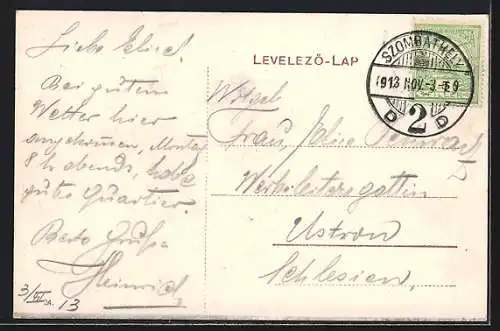 Liebe Elise!
Bei gutem
Wetter hier
angekommen, Montag
8 h abends, habe
gutes Quartier.
Beste Grüße
Heinrich
3/XI. 13
LEVELEZŐ-LAP
SZOMBATHELY
913 NOV -3
D 2 D
Frau Elise
Werksleitersgattin
Ustron
Schlesien.